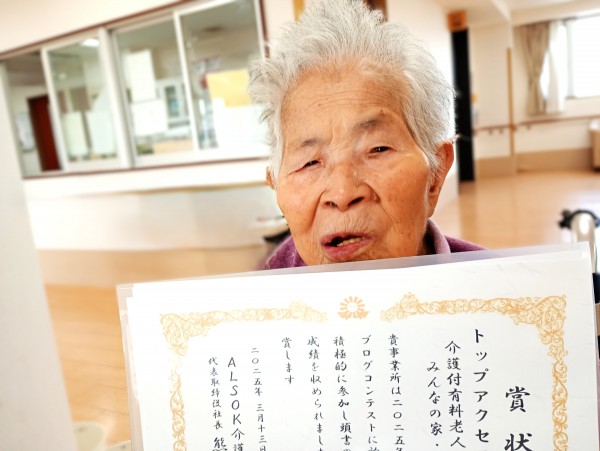 賞状
トップアクセ
介護付有料老人
みんなの家・
貴事業所は二〇二五年
ブログコンテストに
積極的に参加し頭書の
成績を収められました
賞します
二〇二五年 三月十三日
ALSOK介護
代表取締役社長 熊